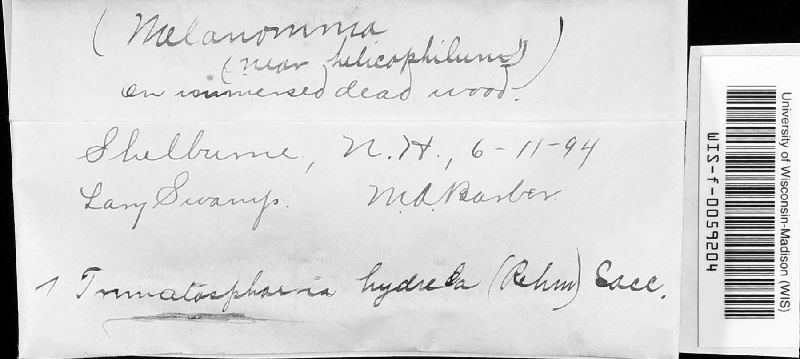 ( Melanomma
(near helicophilum) )
on immersed dead wood.
Shelburne, N.H., 6-11-94
Lary Swamp. M.A. Barber.
1 Trematosphaeria hydrela (Rehm) Sacc.
University of Wisconsin-Madison (WIS)
WIS-f-0059204